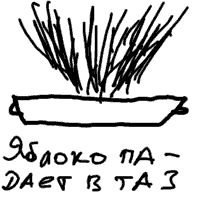 Яблоко па-
дает в таз